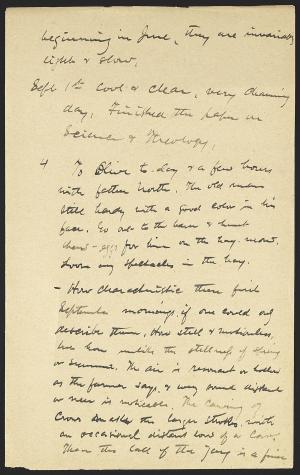 beginning in June, they are invariably
light & slow.
Sept 1st Cool & clear, very charming
day, Finished the paper on
Science & Theology,
4 To Olive to-day & a few hours
with father North. The old man
still hardy with a good color in his
face. Go out to the barn & hunt
hens-eggs for him on the hay-mow.
my spectacles in the hay.
- How characteristic these first
September mornings, if one could only
describe them, How still & motionless,
but how unlike the stillness of spring
or summer. The air is resonant or hollow
as the farmer says, & every sound distant
or near is noticeable. The cawing of
Crows makes the larger strokes, with
an occasional distant bawl of a Cow,
Then the call of the Jay is a fine